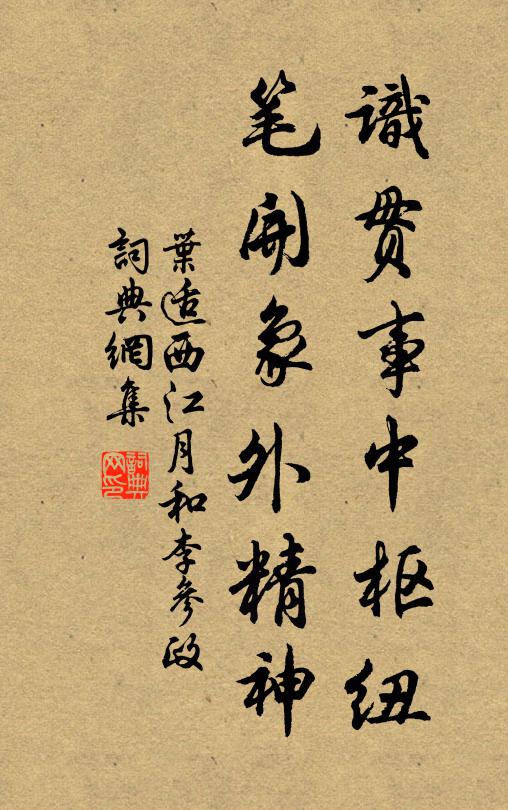 識贯事中枢纽
笔开象外精神
葉适西江月和李參政
詞典網集
詞典網印